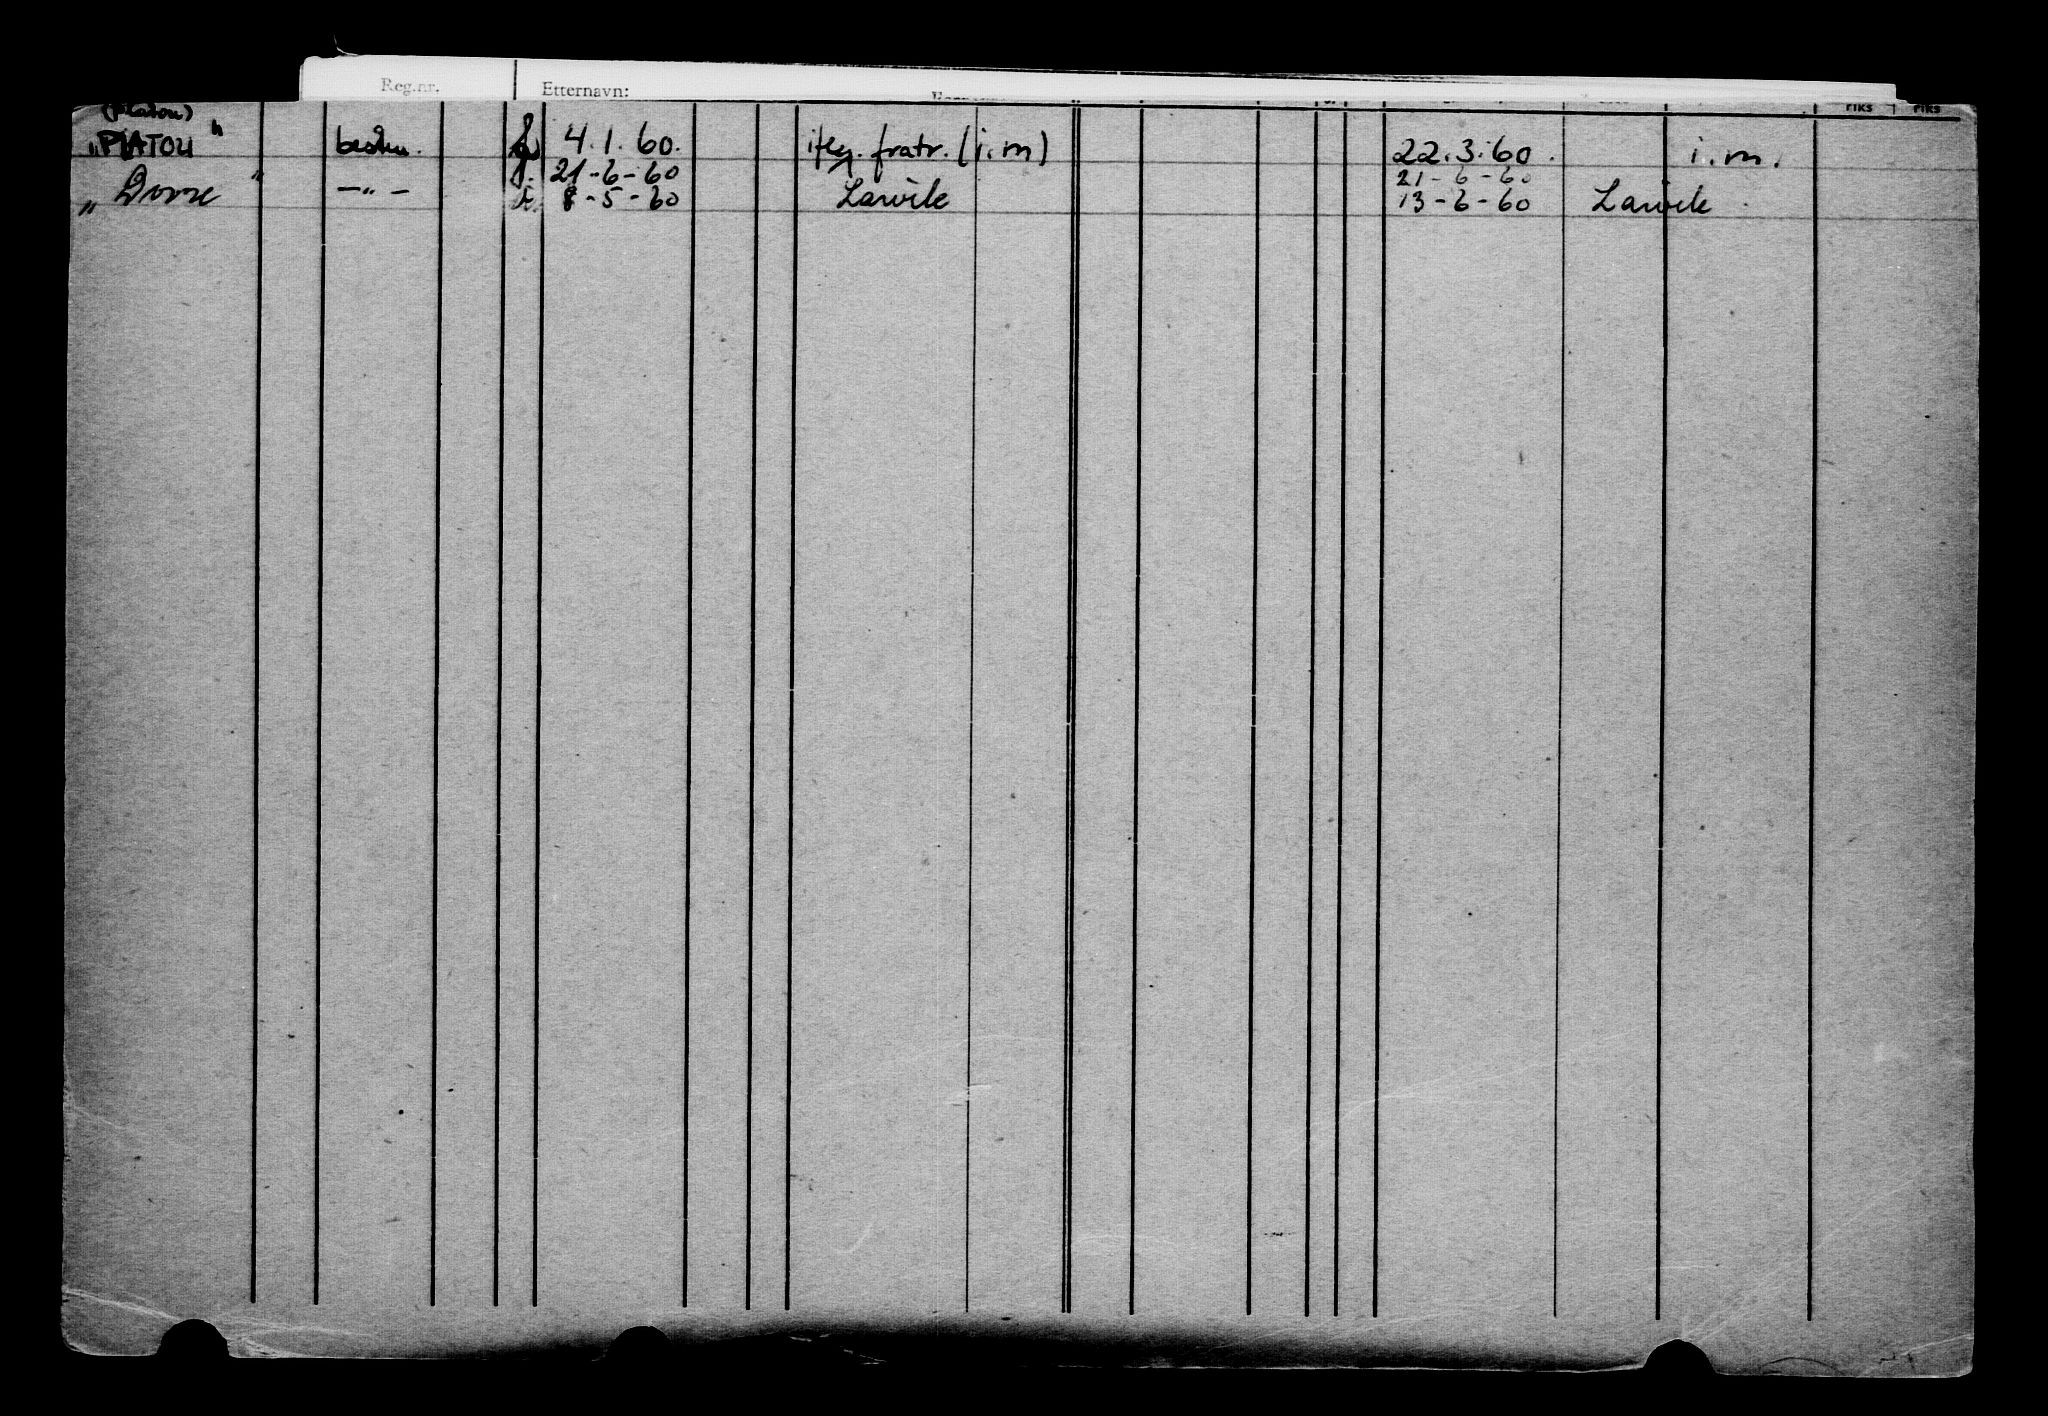 Reg.nr. Etternavn:
(Platou) PIKS PIKS
"PLATOU" 4.1.60. iflg. fratr. (i.m) 22.3.60. i.m.
21-6-60 21-6-60
"Dovre" -"- 8-5-60 Larvik 13-6-60 Larvik